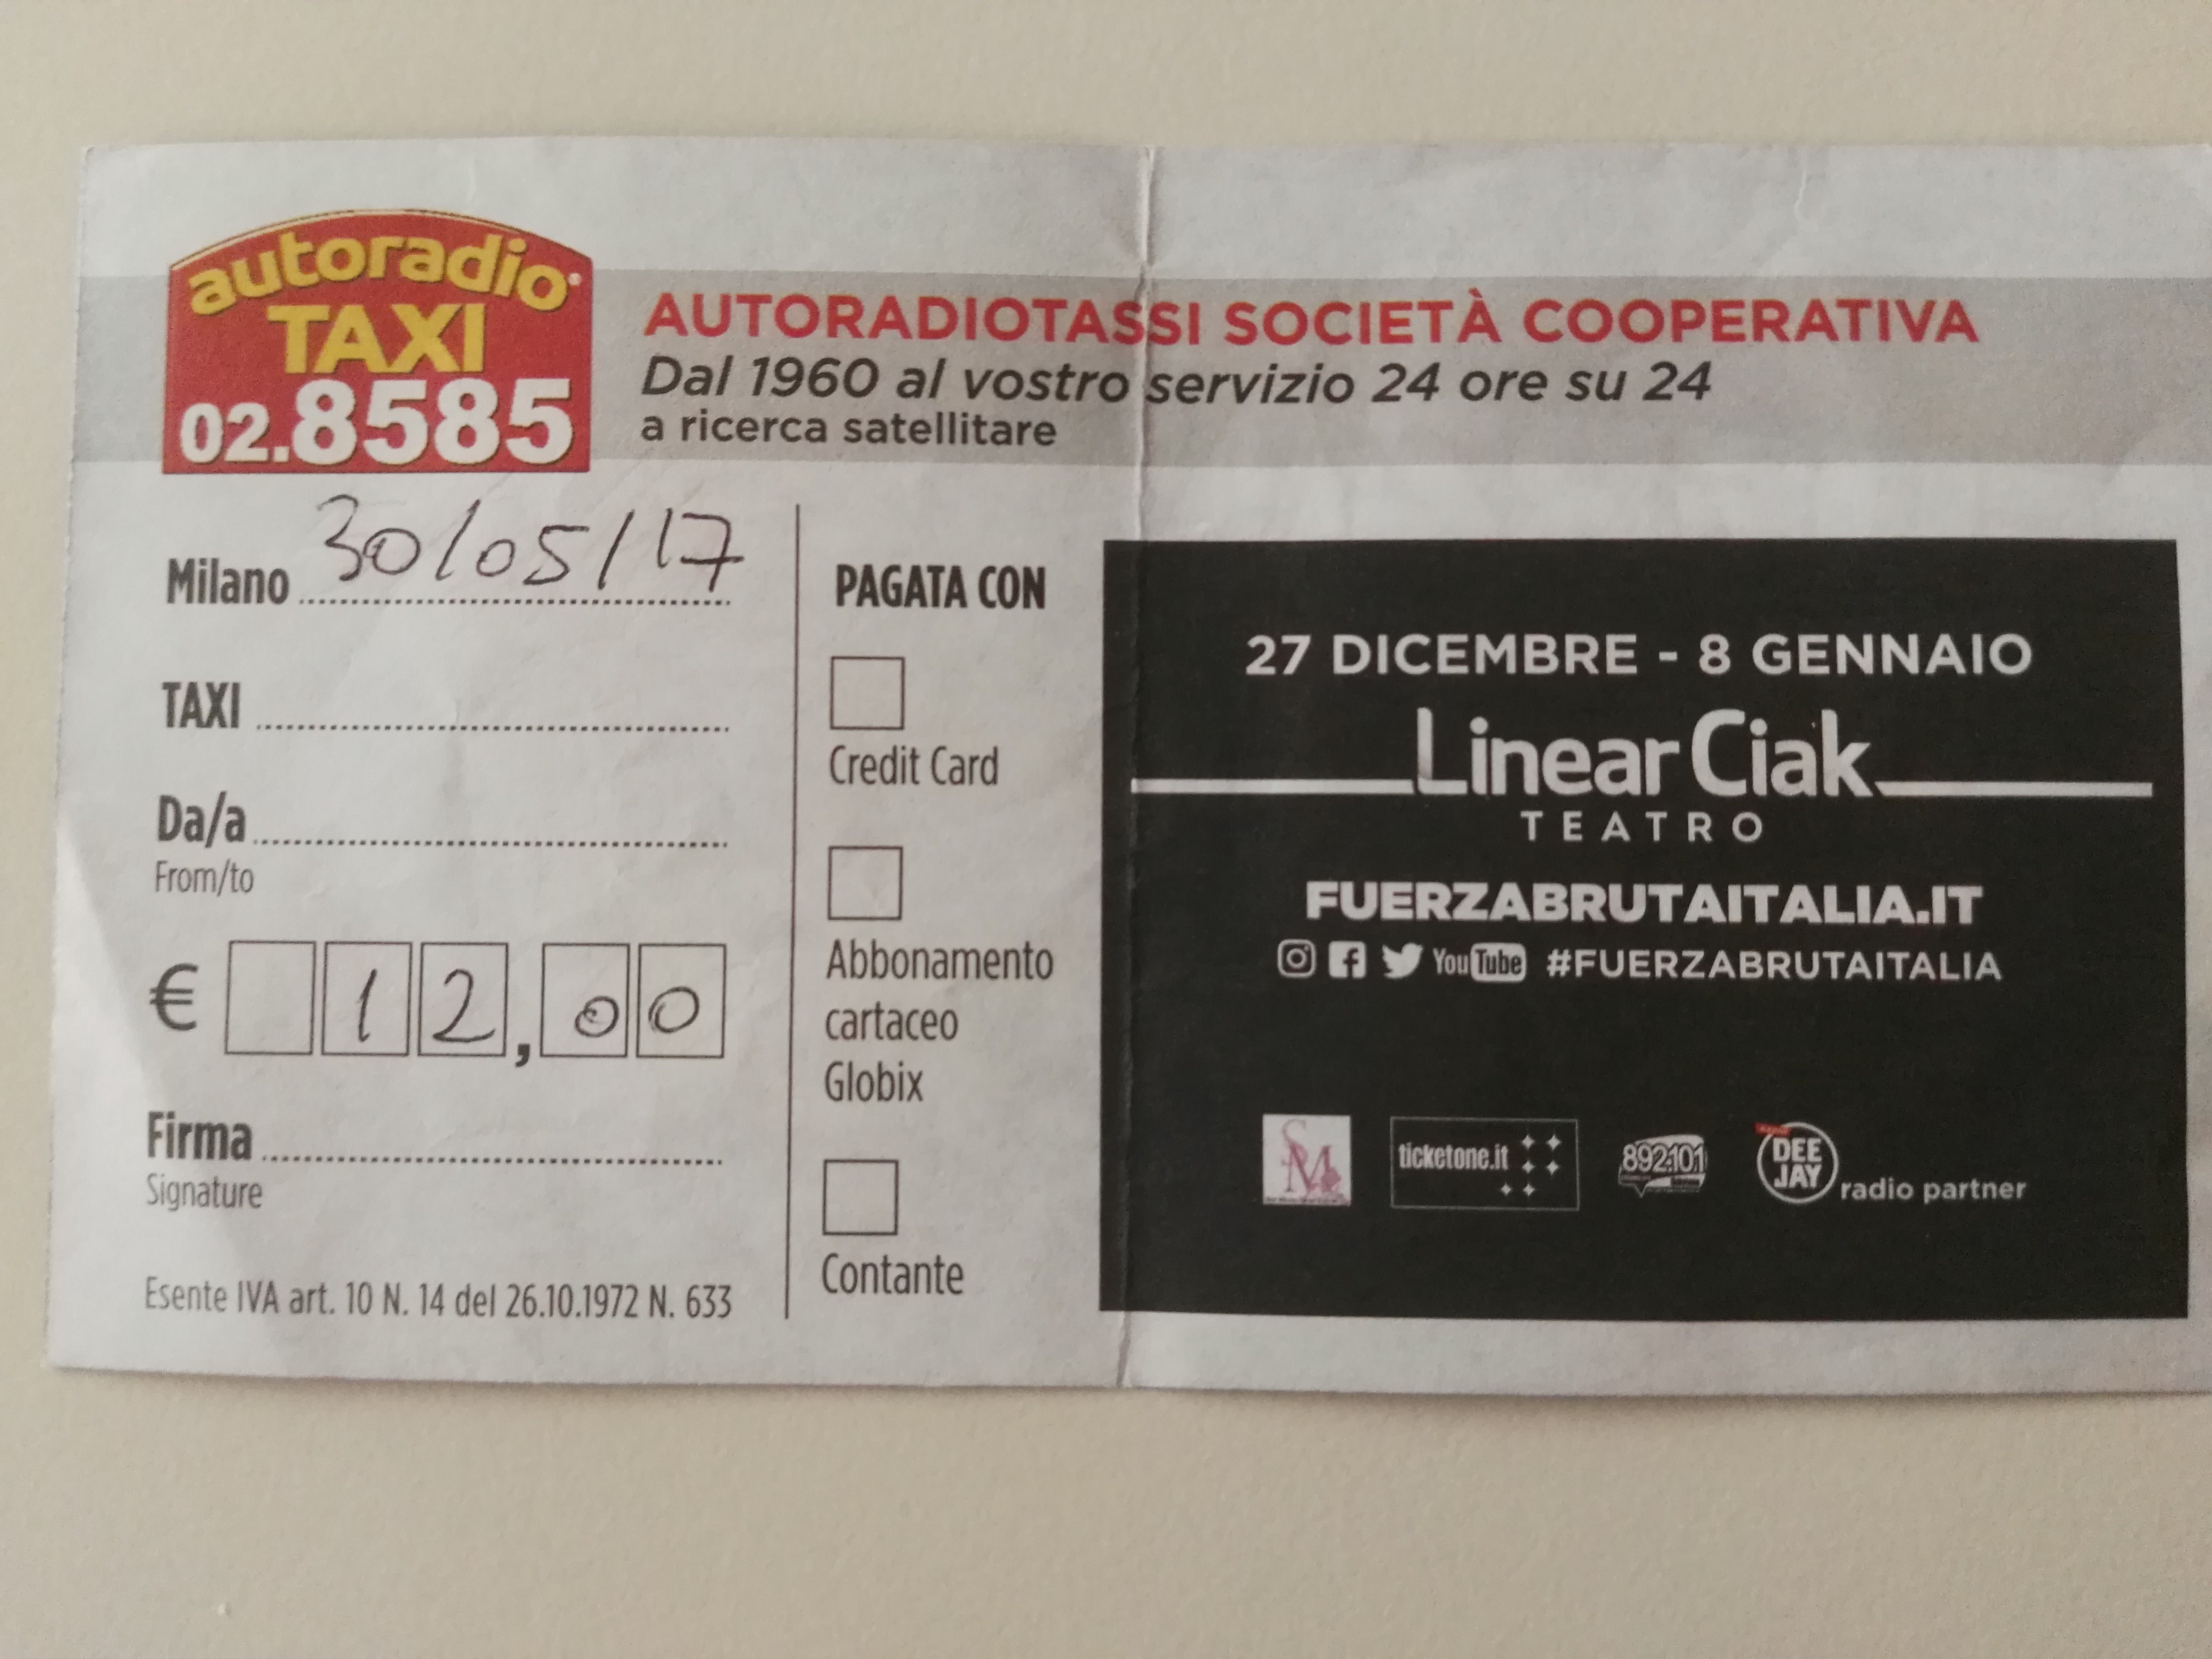 autoradio
TAXI
02.8585
AUTORADIOTASSI SOCIETÀ COOPERATIVA
Dal 1960 al vostro servizio 24 ore su 24
a ricerca satellitare
Milano 30/05/17
TAXI
Da/a
From/to
€ 12,00
Firma
Signature
Esente IVA art. 10 N. 14 del 26.10.1972 N. 633
PAGATA CON
Credit Card
Abbonamento
cartaceo
Globix
Contante
27 DICEMBRE - 8 GENNAIO
Linear Ciak
TEATRO
FUERZABRUTAITALIA.IT
YouTube #FUERZABRUTAITALIA
ticketone.it
892101
DEE
JAY
radio partner